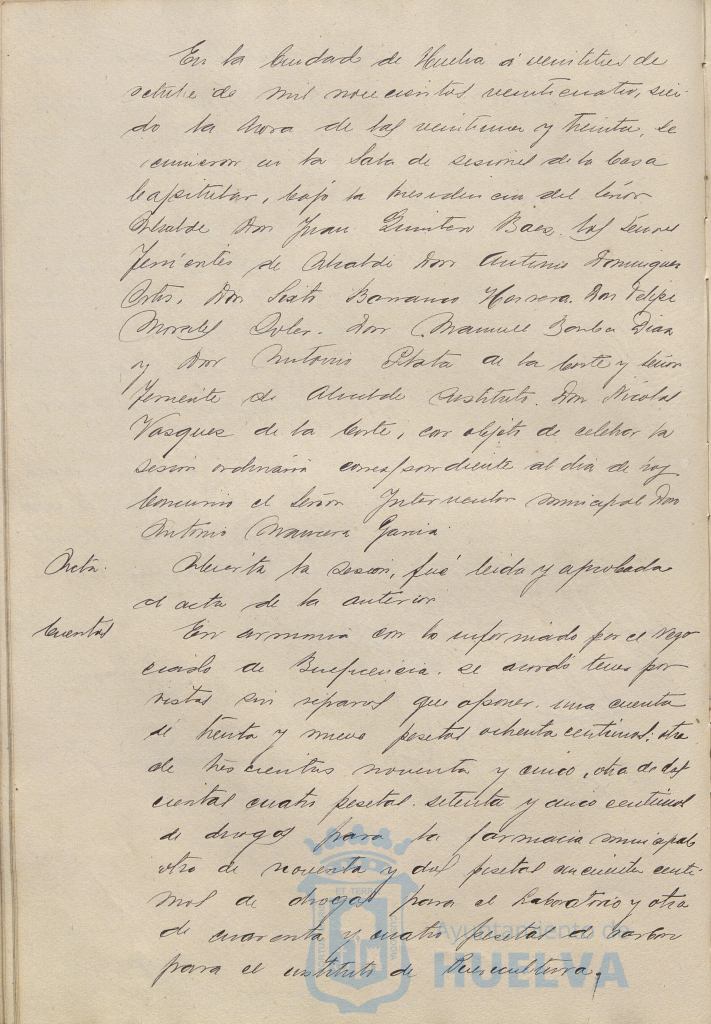 En la Ciudad de Huelva á veintitres de
octubre de mil novecientos veinticuatro, sien-
do la hora de las veintiuna y treinta, se
reunieron en la Sala de sesiones de la Casa
Capitular, bajo la presidencia del Señor
Alcalde Don Juan Quintero Baez. los Señores
Tenientes de Alcalde Don Antonio Dominguez
Ortiz, Don Sixto Barranco Herrera. Don Felipe
Morales Soler. Don Manuel Borba Diaz
y Don Antonio Plata de la Corte y Señor
Teniente de Alcalde sustituto. Don Nicolas
Vasquez de la Corte, con objeto de celebrar la
sesion ordinaria correspondiente al dia de hoy
Concurrio el Señor Interventor municipal Don
Antonio Mancera Garcia.
Acta. Abierta la sesion, fué leida y aprobada
el acta de la anterior
Cuentas En armonia con lo informado por el nego-
ciado de Beneficencia. se acordó tener por
vistas sin reparos que oponer. una cuenta
de treinta y nueve pesetas ochenta centimos; otra
de trescientas noventa y cinco, otra de dos
cientas cuatro pesetas. setenta y cinco centimos
de drogas para la farmacia municipal
otra de noventa y dos pesetas cincuenta centi-
mos de drogas para el Laboratorio y otra
de cuarenta y cuatro pesetas de carbon
para el instituto de Puericultura,
Ayuntamiento de
HUELVA